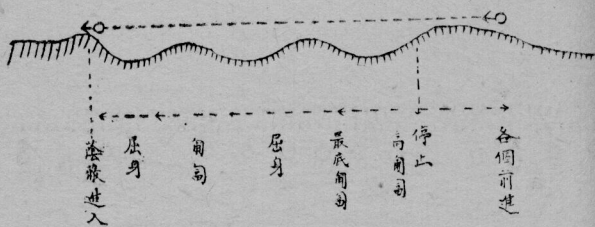 各個前進
停止
高匍匐
最底匍匐
屈身
匍匐
屈身
蔭蔽進入